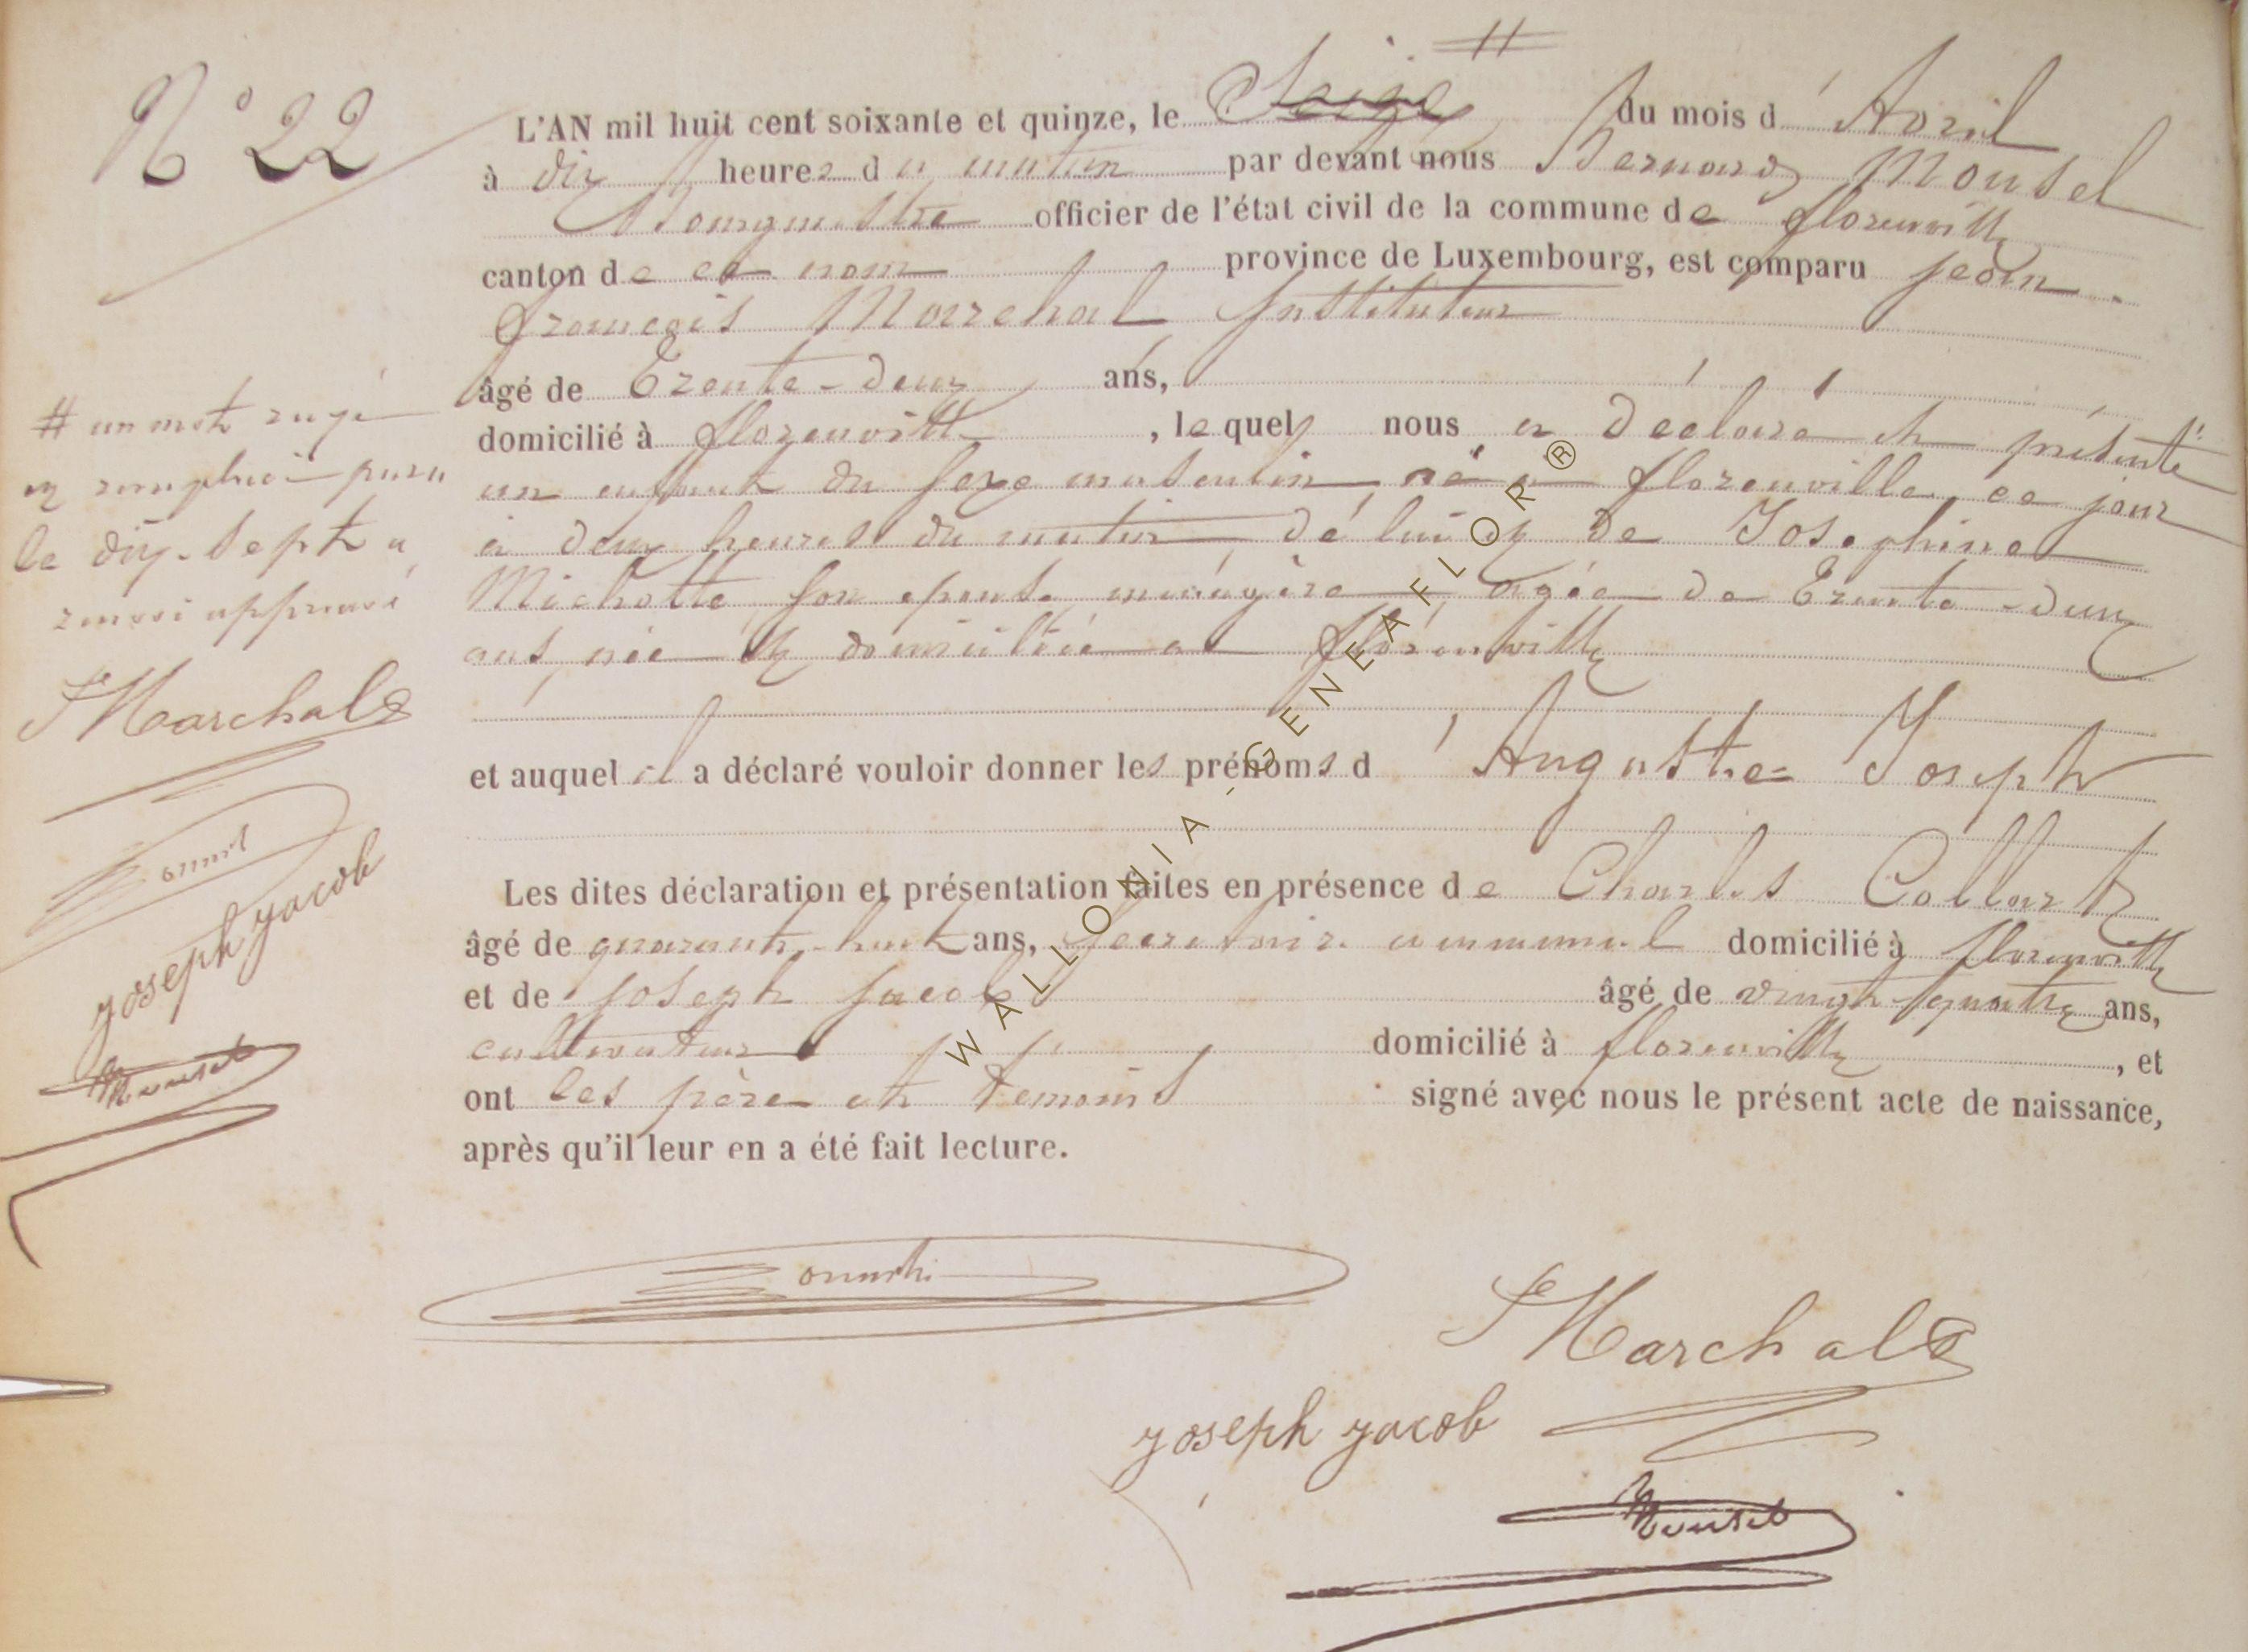 N° 22
L'AN mil huit cent soixante et quinze, le Seize # du mois d'Avril
à dix heures du matin par devant nous Bernard Mousel
Bourgmestre officier de l'état civil de la commune de florenville
canton de ce nom province de Luxembourg, est comparu Jean
François Marchal Instituteur
âgé de Trente-deux ans,
domicilié à florenville, lequel nous a déclaré et présenté
un enfant du sexe masculin, né à florenville, ce jour
à deux heures du matin de lui et de Josephine
Michotte son epouse, ménagère agée de Trente-deux
ans, née et domiciliée a florenville
et auquel il a déclaré vouloir donner les prénoms d'Auguste Joseph
Les dites déclaration et présentation faites en présence de Charles Collart
âgé de quarante-huit ans, secretaire communal domicilié à florenville
et de Joseph Jacob âgé de vingt quatre ans,
cultivateur domicilié à florenville, et
ont les père et temoins signé avec nous le présent acte de naissance,
après qu'il leur en a été fait lecture.
# un mot rayé
et remplacé par
le dix-sept
renvoi approuvé
Marchal
Joseph Jacob
Mousel
Marchal
Joseph Jacob
Mousel
WALLONIA-GENEAFLOR®